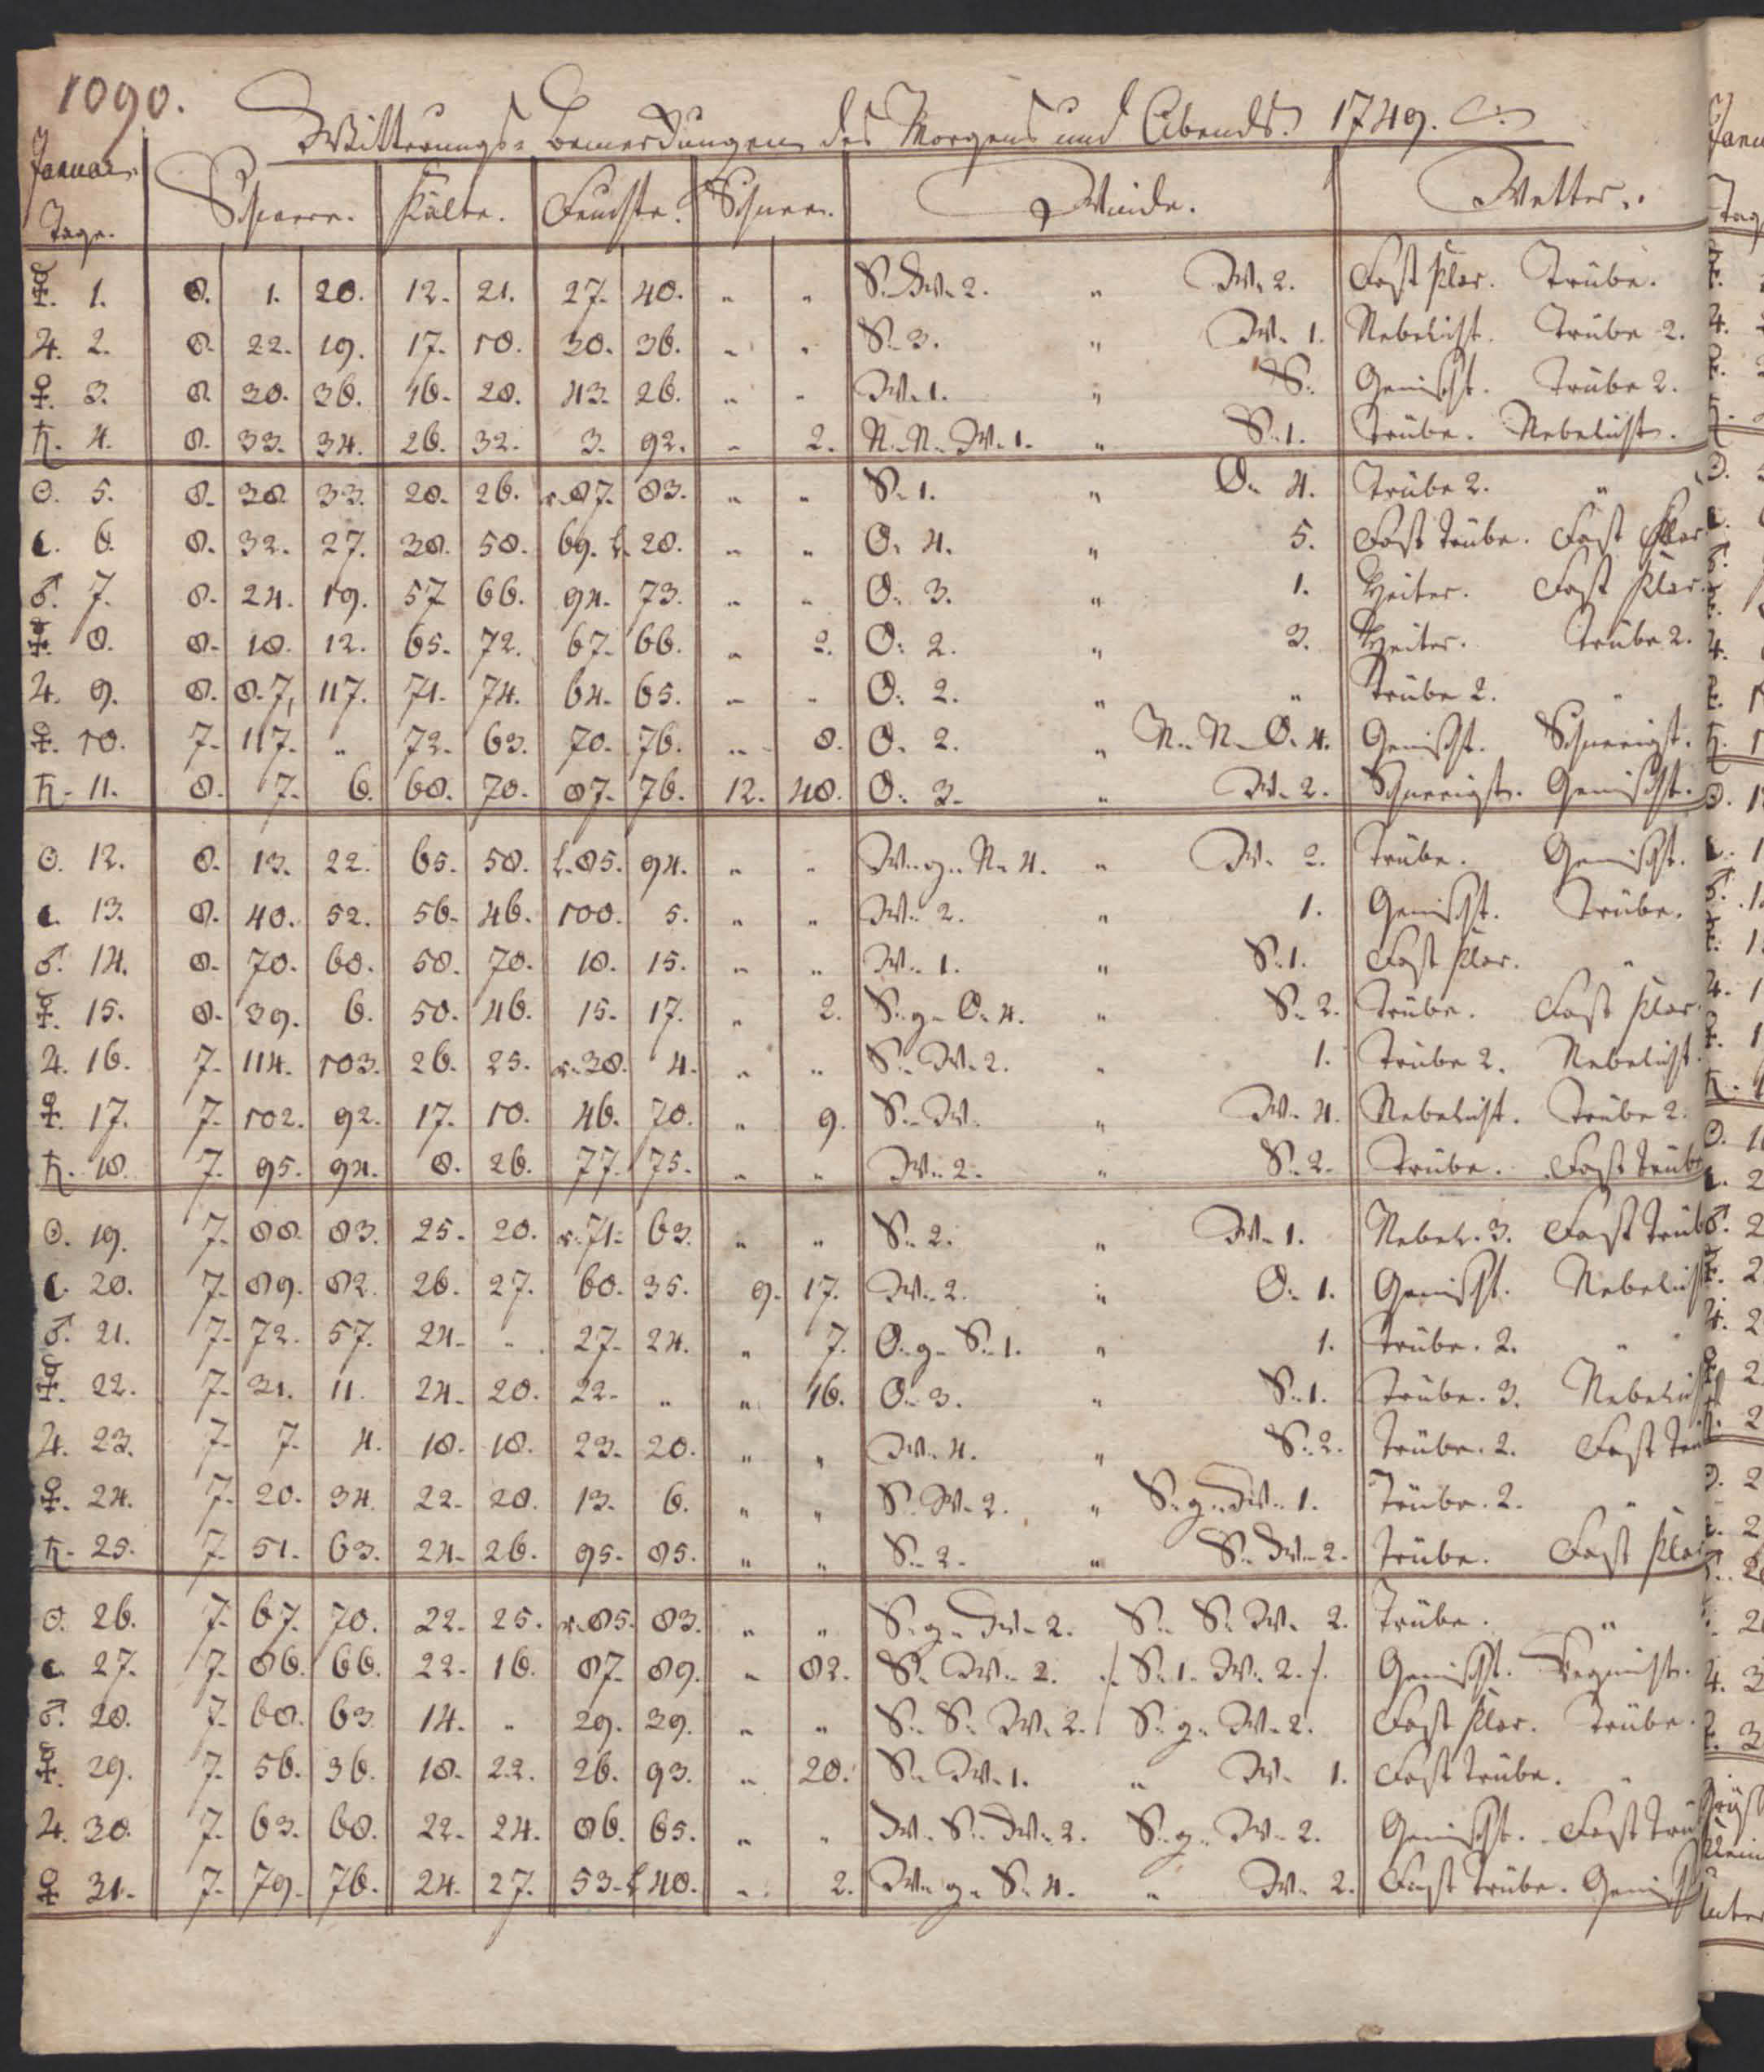 1090.
Witterungs- Bemerckungen des Morgens und Abends. 1749.
Januar.
Tage. Schwere. Kälte. Feuchte. Schnee. Winde. Wetter.
☿. 1. 8. 1. 20. 12. 21. 27. 40. " " S. W. 2. " W. 2. Fast klar. Trübe.
♃. 2. 8. 22. 19. 17. 18. 30. 36. " " S. 3. " W. 1. Nebelicht. Trübe 2.
♀. 3. 8. 30. 36. 16. 28. 43. 26. " " W. 1. " S. Gemischt. Trübe 2.
♄. 4. 8. 33. 34. 26. 32. 3. 92. " 2. N. N. W. 1. " S. 1. Trübe. Nebelicht.
☉. 5. 8. 38. 33. 28. 26. r. 87. 83. " " S. 1. " O. 4. Trübe 2. "
☾. 6. 8. 32. 27. 38. 58. 69. l. 28. " " O. 4. " 5. Fast trübe. Fast klar
♂. 7. 8. 24. 19. 57 66. 94. 73. " " O. 3. " 1. Heiter. Fast klar.
☿. 8. 8. 18. 12. 65. 72. 67. 66. " 2. O. 2. " 3. Heiter. Trübe 2.
♃. 9. 8. 8. 7, 117. 71. 74. 64. 65. " " O. 2. " " Trübe 2. "
♀. 10. 7. 117. " 72. 63. 70. 76. " 8. O. 2. " N. N. O. 4. Gemischt. Schneeigt.
♄. 11. 8. 7. 6. 68. 70. 87. 76. 12. 48. O. 3. " W. 2. Schneeigt. Gemischt.
☉. 12. 8. 13. 22. 65. 58. l. 85. 94. " " W. g. N. 4. " W. 2. Trübe. Gemischt.
☾. 13. 8. 40. 52. 56. 46. 100. 5. " " W. 2. " 1. Gemischt. Trübe.
♂. 14. 8. 70. 68. 58. 70. 18. 15. " " W. 1. " S. 1. Fast klar. "
☿. 15. 8. 39. 6. 50. 46. 15. 17. " 2. S. g. O. 4. " S. 2. Trübe. Fast klar.
♃. 16. 7. 114. 103. 26. 25. r. 38. 4. " " S. W. 2. " 1. Trübe 2. Nebelicht
♀. 17. 7. 102. 92. 17. 10. 46. 70. " 9. S. W. " W. 4. Nebelicht. Trübe 2.
♄. 18. 7. 95. 94. 8. 26. 77. 75. " " W. 2. " S. 2. Trübe. Fast trübe
☉. 19. 7. 88. 83. 25. 20. r. 71. 63. " " S. 2. " W. 1. Nebel. 3. Fast trüb
☾. 20. 7. 89. 82. 26. 27. 60. 35. 9. 17. W. 2. " O. 1. Gemischt. Nebelich
♂. 21. 7. 72. 57. 24. " 27. 24. " 7. O. g. S. 1. " 1. Trübe. 2. "
☿. 22. 7. 31. 11. 24. 20. 22. " " 16. O. 3. " S. 1. Trübe. 3. Nebelich
♃. 23. 7. 7. 4. 18. 18. 23. 20. " " W. 4. " S. 2. Trübe. 2. Fast trü
♀. 24. 7. 20. 34. 22. 28. 13. 6. " " S. W. 2. " S. g. W. 1. Trübe. 2. "
♄. 25. 7. 51. 63. 24. 26. 95. 85. " " S. 2. " S. W. 2. Trübe. Fast klar
☉. 26. 7. 67. 70. 22. 25. r. 85. 83. " " S. g. W. 2. S. S. W. 2. Trübe. "
☾. 27. 7. 86. 66. 22. 16. 87. 89. " 82. S. W. 2. /. S. 1. W. 2. /. Gemischt. Regnicht.
♂. 28. 7. 68. 63 14. " 29. 39. " " S. S. W. 2. S. g. W. 2. Fast klar. Trübe.
☿. 29. 7. 56. 36. 18. 22. 26. 93. " 20. S. W. 1. " W. 1. Fast trübe. "
♃. 30. 7. 63. 68. 22. 24. 86. 65. " " W. S. W. 2. S. g. W. 2. Gemischt. Fast trü
♀. 31. 7. 79. 76. 24. 27. 53. l. 40. " 2. W. g. S. 4. " W. 2. Fast trübe. Gemisch